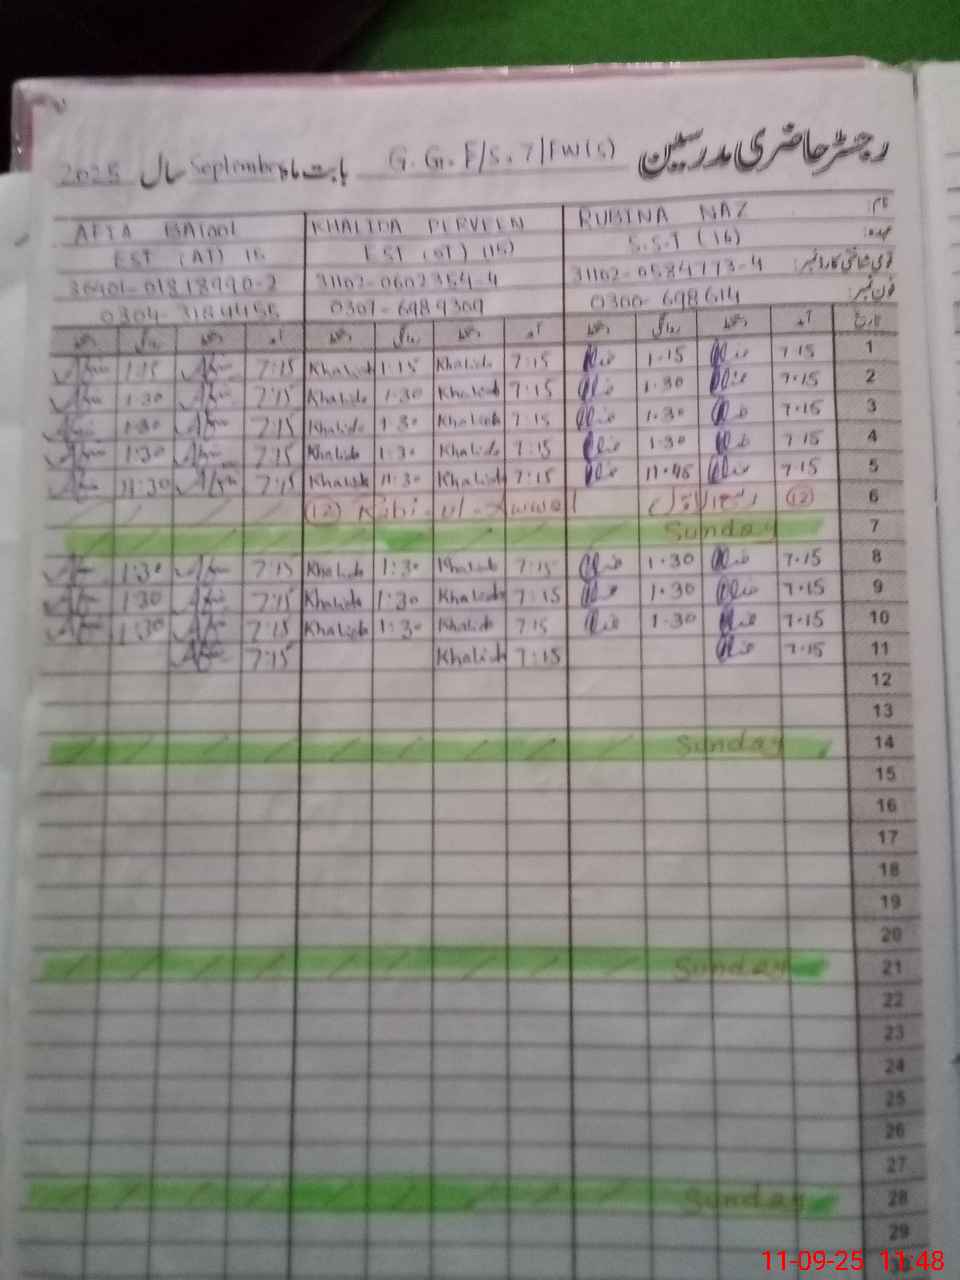 رجسٹر حاضری مدرسین G.G.E/S.7/FW(S) بابت ماہ September سال 2025
نام: RUBINA NAZ KHALIDA PERVEEN BATOOL
عہدہ: S.S.T (16) EST (OT) (15) EST (AT) 15
قومی شناختی کارڈ نمبر: 31102-0584773-4 31102-0602354-4
فون نمبر: 0300-698614 0307-6989309
تاریخ آمد دستخط روانگی دستخط آمد دستخط روانگی دستخط آمد دستخط روانگی دستخط
1 7:15 1:15 7:15 Khalida 1:15 Khalida 7:15 1:15
2 7:15 1:30 7:15 Khalida 1:30 Khalida 7:15 1:30
3 7:15 1:30 7:15 Khalida 1:30 Khalida 7:15 1:30
4 7:15 1:30 7:15 Khalida 1:30 Khalida 7:15 1:30
5 7:15 11:45 7:15 Khalida 11:30 Khalida 7:15 11:30
6 (12) ربیع الاول (12)
7 Sunday
8 7:15 1:30 7:15 Khalida 1:30 Khalida 7:15 1:30
9 7:15 1:30 7:15 Khalida 1:30 Khalida 7:15 1:30
10 7:15 1:30 7:15 Khalida 1:30 Khalida 7:15 1:30
11 7:15 7:15 Khalida 7:15
12
13
14 Sunday
15
16
17
18
19
20
21 Sunday
22
23
24
25
26
27
28 Sunday
29
11-09-25 11:48